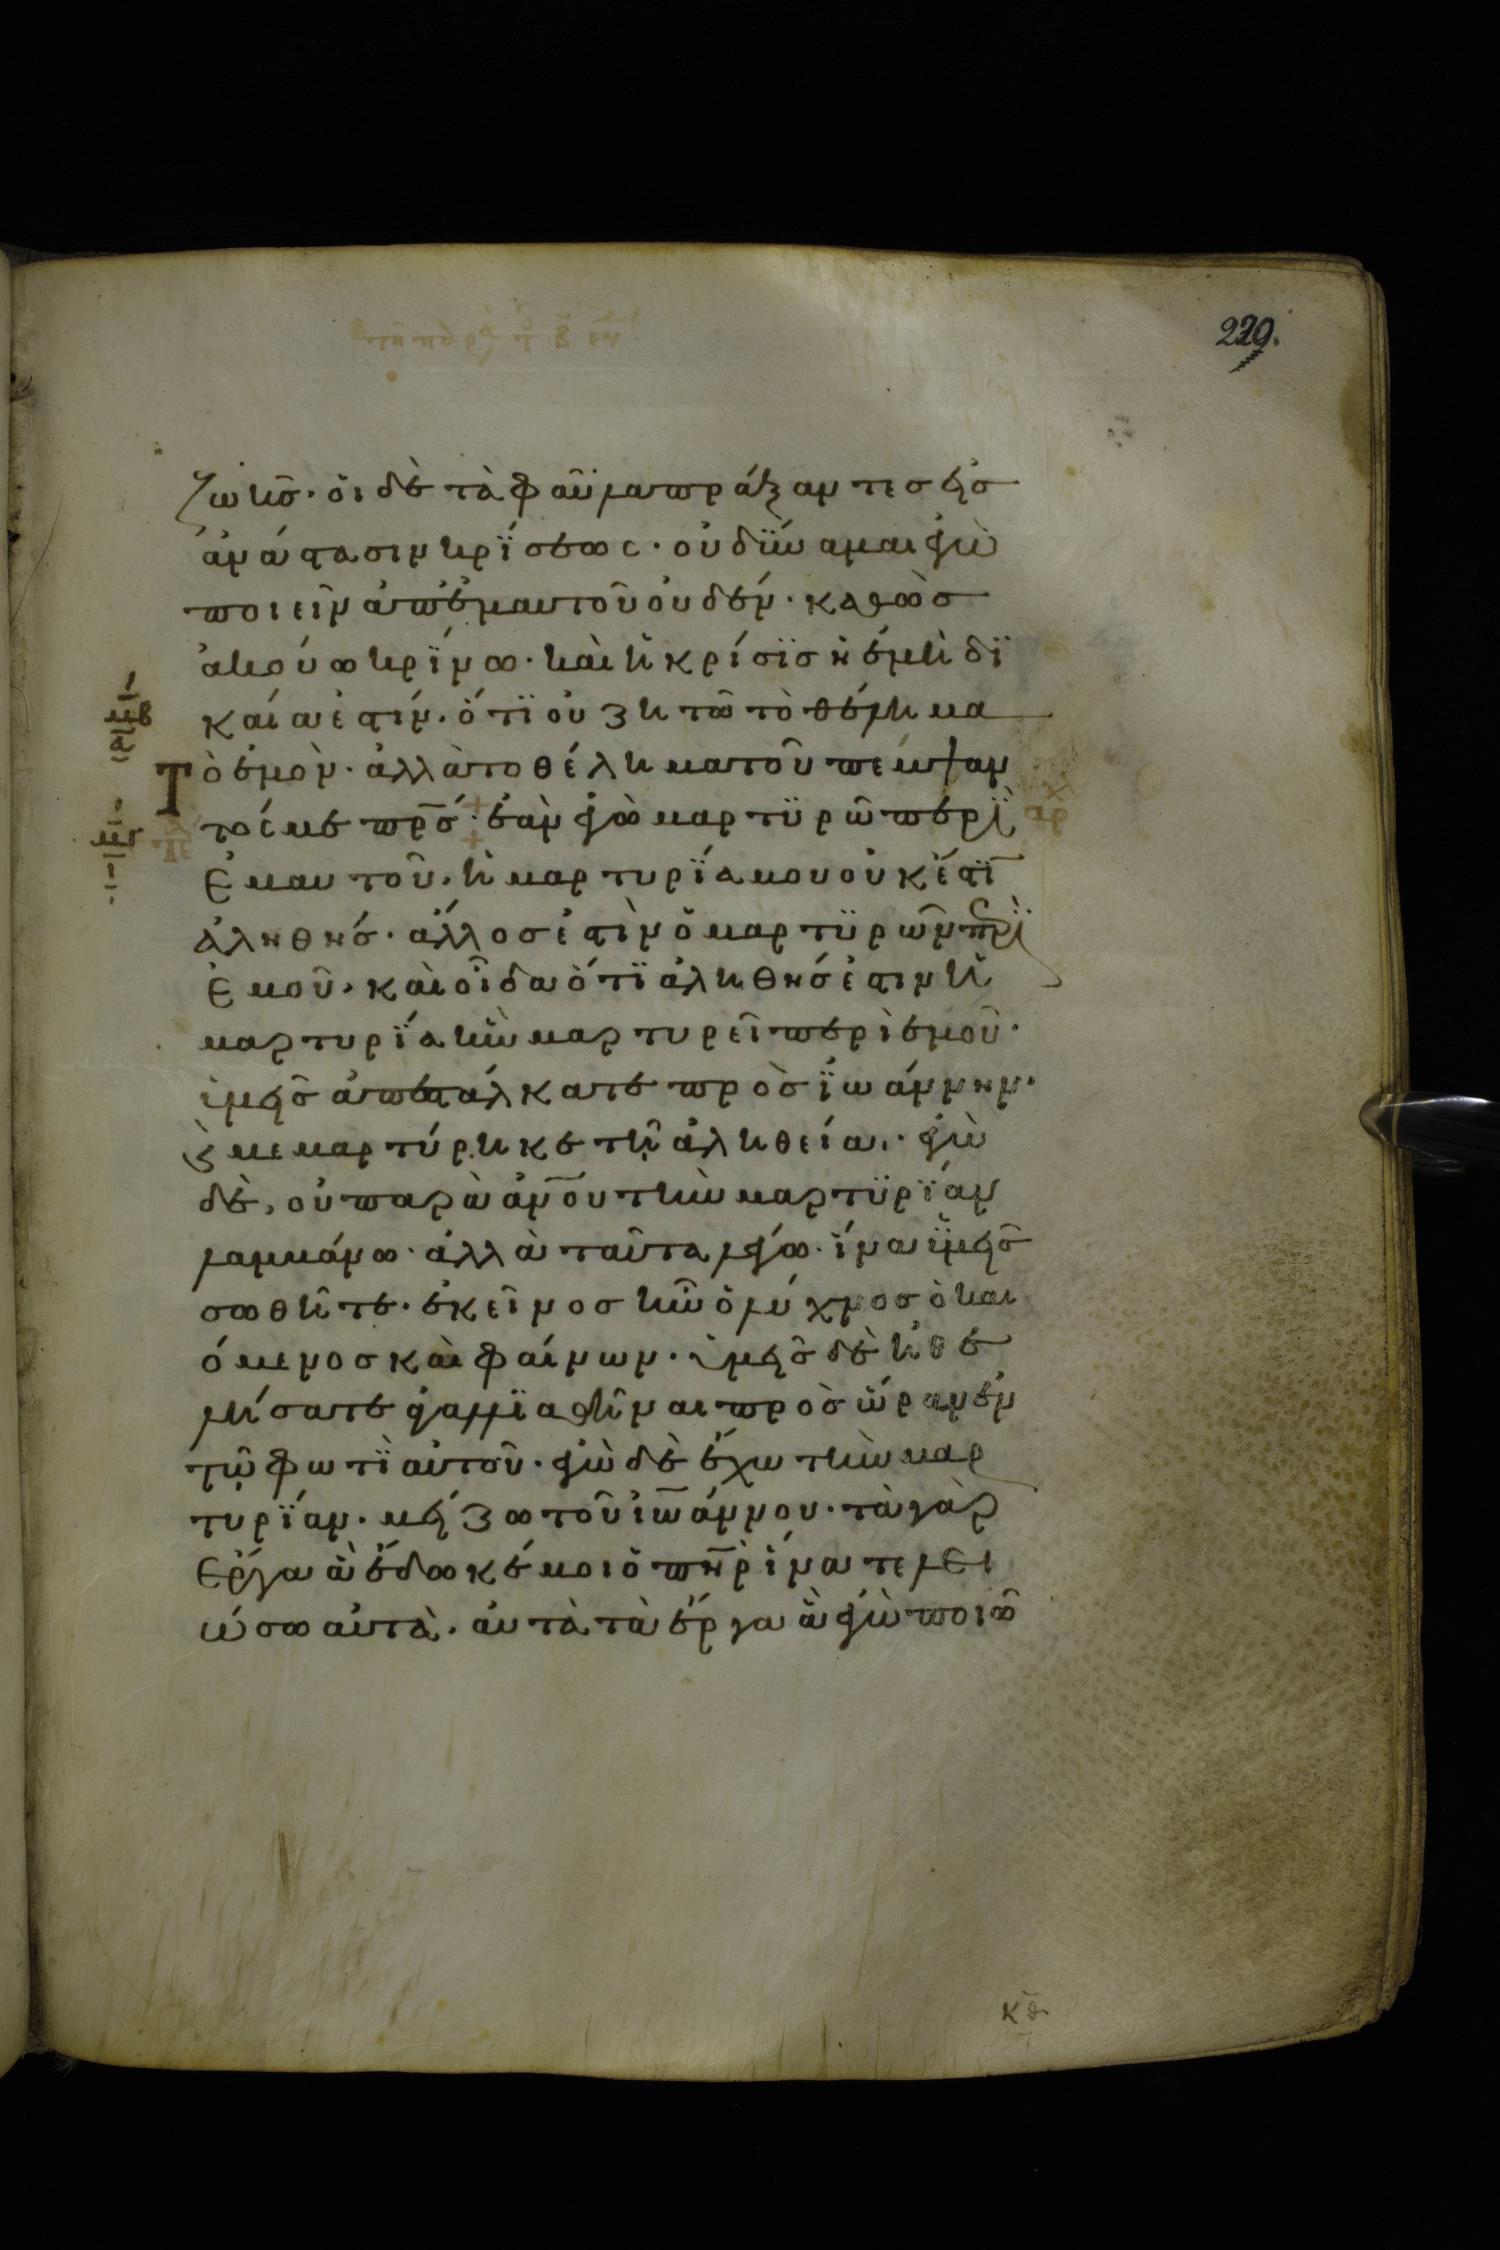 229.
ζωῆσ· οἱ δὲ τὰ φαῦλα πράξαντεσ εἰσ
ἀνάστασιν κρίσεως· οὐ δύναμαι ἐγὼ
ποιεῖν ἀπ' ἐμαυτοῦ οὐδέν· καθὼσ
ἀκούω κρίνω· καὶ ἡ κρίσϊσ ἡ ἐμὴ δϊ
καία ἐστίν· ὅτϊ οὐ ζητῶ τὸ θέλημα
Τὸ ἐμὸν· ἀλλὰ το θέλημα τοῦ πέμψαν
τόσ με πρσ· ἐὰν ἐγὼ μαρτϋρῶ περῒ
ἐμαυτοῦ· ἡ μαρτυρΐα μου οὐκ ἔστϊ
ἀληθήσ· ἄλλοσ ἐστὶν ὁ μαρτϋρῶν πρῒ
ἐμοῦ· καὶ οἶδα ὅτϊ ἀληθήσ ἐστιν ἡ
μαρτυρΐα ἣν μαρτυρεῖ περὶ ἐμοῦ·
ὑμεῖσ ἀπεστάλκατε πρὸσ ϊωάννην·
καὶ μεμαρτύρηκε τῇ ἀληθεία· ἐγὼ
δὲ, οὐ παρὰ ἀνου τὴν μαρτϋρΐαν
λαμβάνω· ἀλλὰ ταῦτα λέγω· ἵνα ὑμεῖσ
σωθῆτε· ἐκεῖνοσ ἦν ὁ λύχνοσ ὁ και
όμενοσ καὶ φαίνων· ὑμεῖσ δὲ ἠθε
λήσατε ἀγαλλϊαθῆναι πρὸσ ὥραν ἐν
τῷ φωτῒ αὐτοῦ· ἐγὼ δὲ ἔχω τὴν μαρ
τυρΐαν· μείζω τοῦ ϊωάννου· τὰ γὰρ
ἔργα ἃ ἔδωκέ μοι ὁ πηρ ἵνα τελει
ώσω αὐτὰ· αὐτὰ τὰ ἔργα ἃ ἐγὼ ποιῶ
κθ